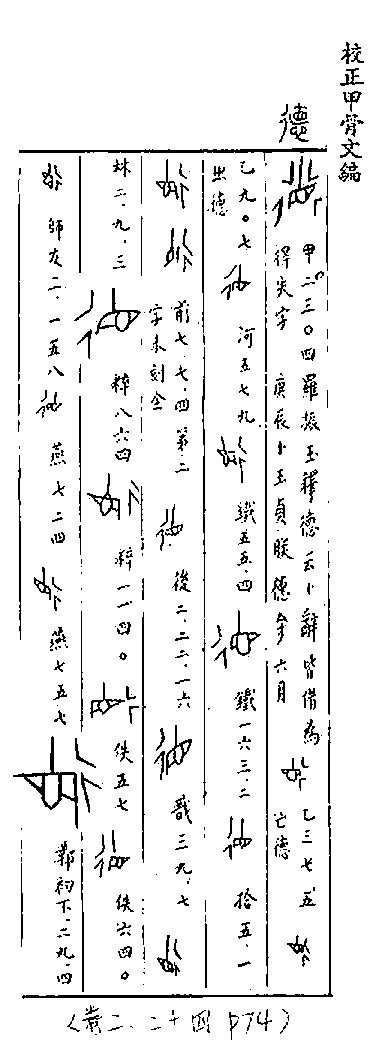 校正甲骨文編
德
甲二三〇四羅振玉釋德云卜辭皆借為得失字 庚辰卜王貞朕德 六月
乙三七五 亡德
乙九〇七 㞢德
河五七九
鐵五五·四
鐵一六三·二
拾五·一
前七·七·四 第二字未刻全
後二·二二·一六
戩三九·七
林二·九·三
粹八六四
粹一一四〇
佚五七
佚六四〇
師友二·一五八
燕七二四
燕七五七
鄴初下·二九·四
(卷二、二十四 P74)